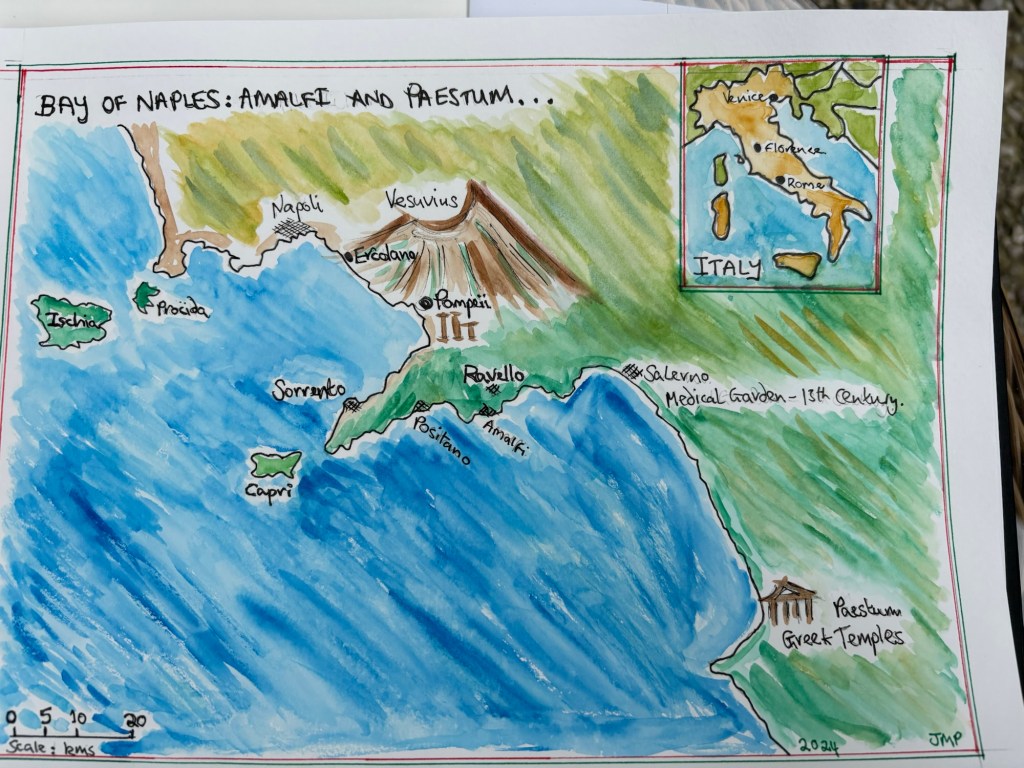 BAY OF NAPLES: AMALFI AND PAESTUM...
Venice
Florence
Rome
ITALY
Napoli
Vesuvius
Ercolano
Pompeii
Ischia
Procida
Sorrento
Ravello
Salerno
Medical Garden - 13th Century.
Positano
Amalfi
Capri
Paestum
Greek Temples
0 5 10 20
Scale: kms
2024
JMP